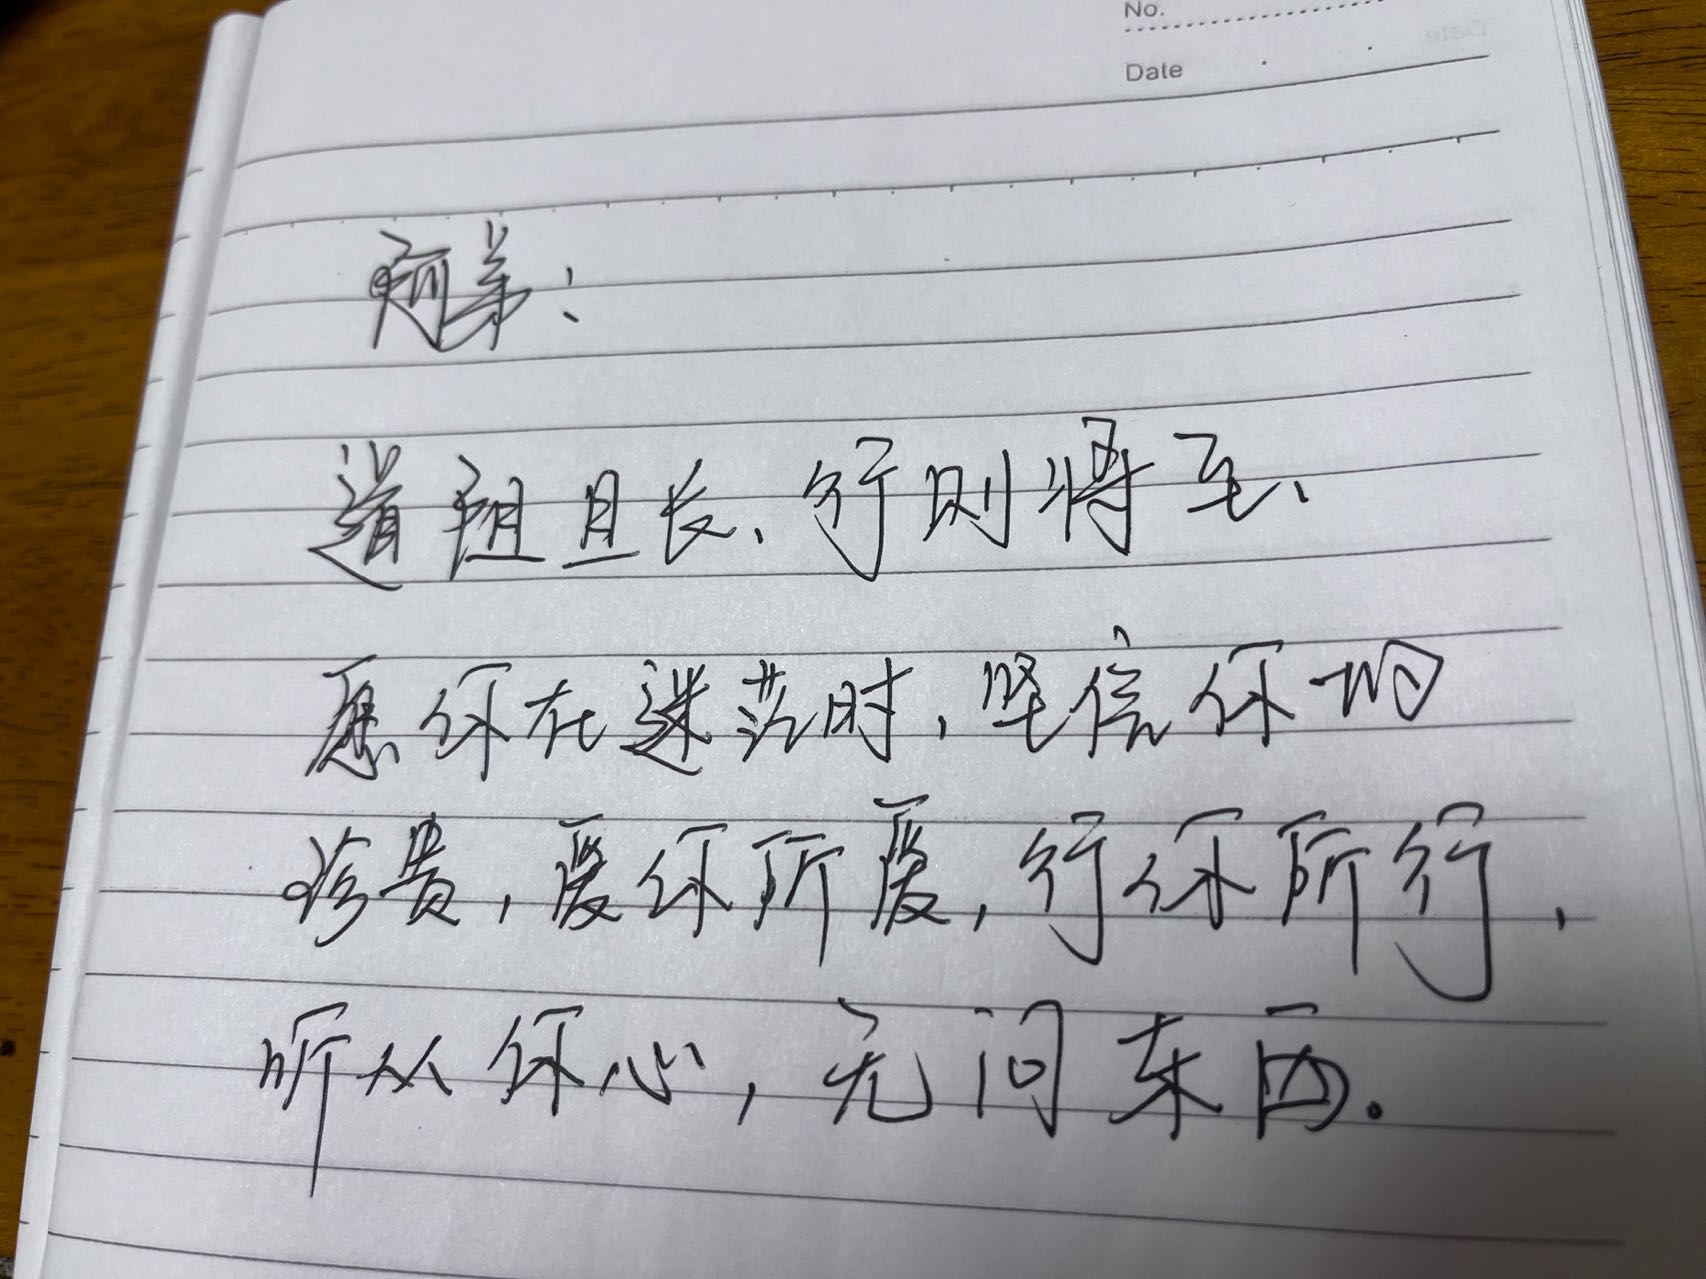 No.
Date
道阻且长、行则将至、
愿你在迷茫时，坚信你的
珍贵，爱你所爱，行你所行，
听从你心，无问东西。